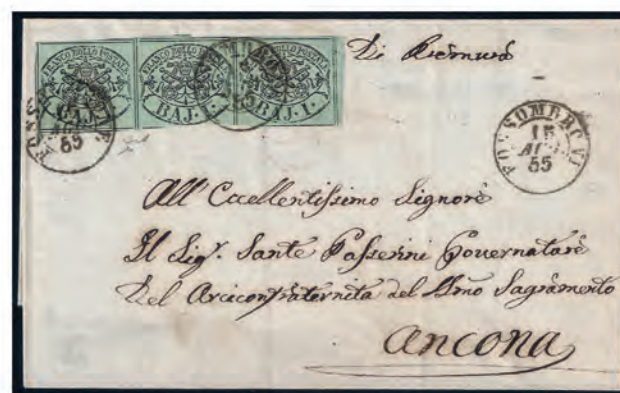 FRANCO BOLLO POSTALE FRANCO BOLLO POSTALE FRANCO BOLLO POSTALE
BAJ. 1. BAJ. 1. BAJ. 1.
Di
FOSSOMBRONE
15
55
All' Eccellentissimo Signore
Il Sigr. Sante Passerini Governatore
Del Arciconfraternita del Smo Sagramento
Ancona